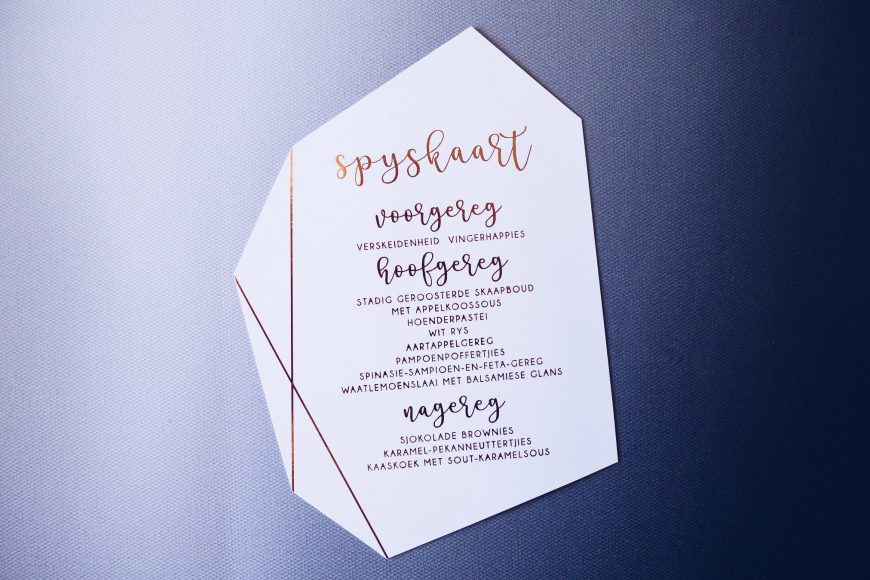 spyskaart
voorgereg
VERSKEIDENHEID VINGERHAPPIES
hoofgereg
STADIG GEROOSTERDE SKAAPBOUD
MET APPELKOOSSOUS
HOENDERPASTEI
WIT RYS
AARTAPPELGEREG
PAMPOENPOFFERTJIES
SPINASIE-SAMPIOEN-EN-FETA-GEREG
WAATLEMOENSLAAI MET BALSAMIESE GLANS
nagereg
SJOKOLADE BROWNIES
KARAMEL-PEKANNEUTTERTJIES
KAASKOEK MET SOUT-KARAMELSOUS